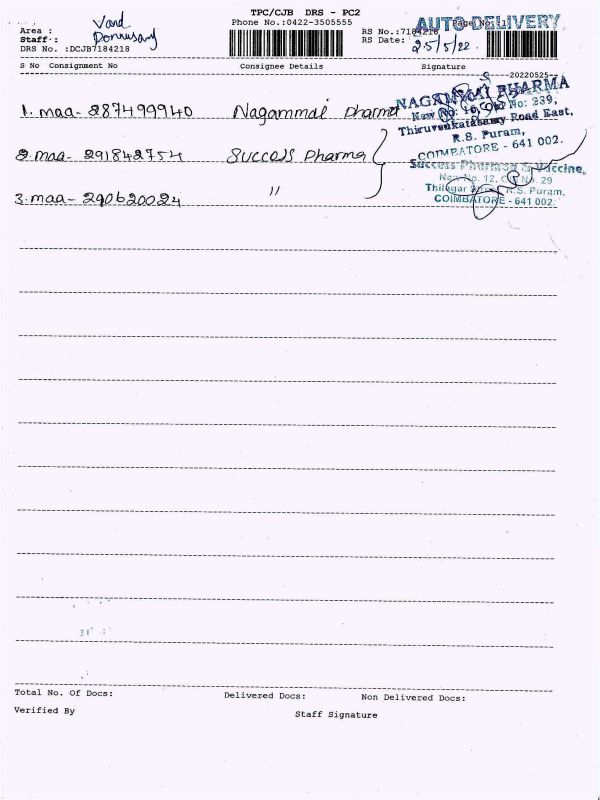 TPC/CJB DRS - PC2
Phone No.:0422-3505555
AUTO DELIVERY
Page No.:1
Area :
Staff :
DRS No. :DCJB7184218
RS No.:7184218
RS Date:
25/5/22
S No Consignment No Consignee Details Signature
20220525
1. maa- 287499940 Nagammai pharma
NAGAMMAI PHARMA
New No: 16, Old No: 239,
Thiruvenkatasamy Road East,
R.S. Puram,
COIMBATORE - 641 002.
2. maa- 291842754 Success pharma
Success Pharma & Vaccine,
New No. 12, Old No. 29
Thilagar Street, R.S. Puram,
COIMBATORE - 641 002.
3. maa- 290620024 "
Total No. Of Docs: Delivered Docs: Non Delivered Docs:
Verified By Staff Signature